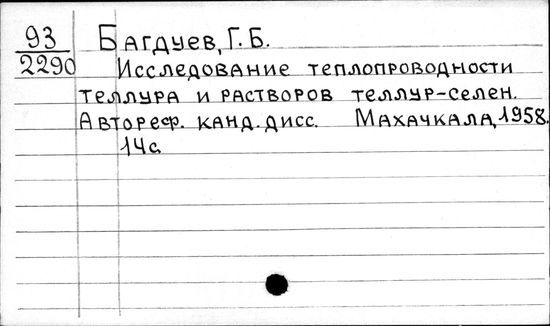 93 Багдуев, Г. Б.
2290 Исследование теплопроводности
теллура и растворов теллур-селен.
Автореф. канд. дисс. Махачкала, 1958.
14с